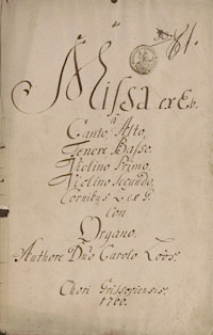 81.
Missa ex Eb.
a
Canto Alto,
Tenore Basso.
Violino Primo,
Violino Secundo,
Cornibus 2 ex G.
Con
Organo.
Authore Dno Carolo Loos.
Chori Grissoviensis.
1766.